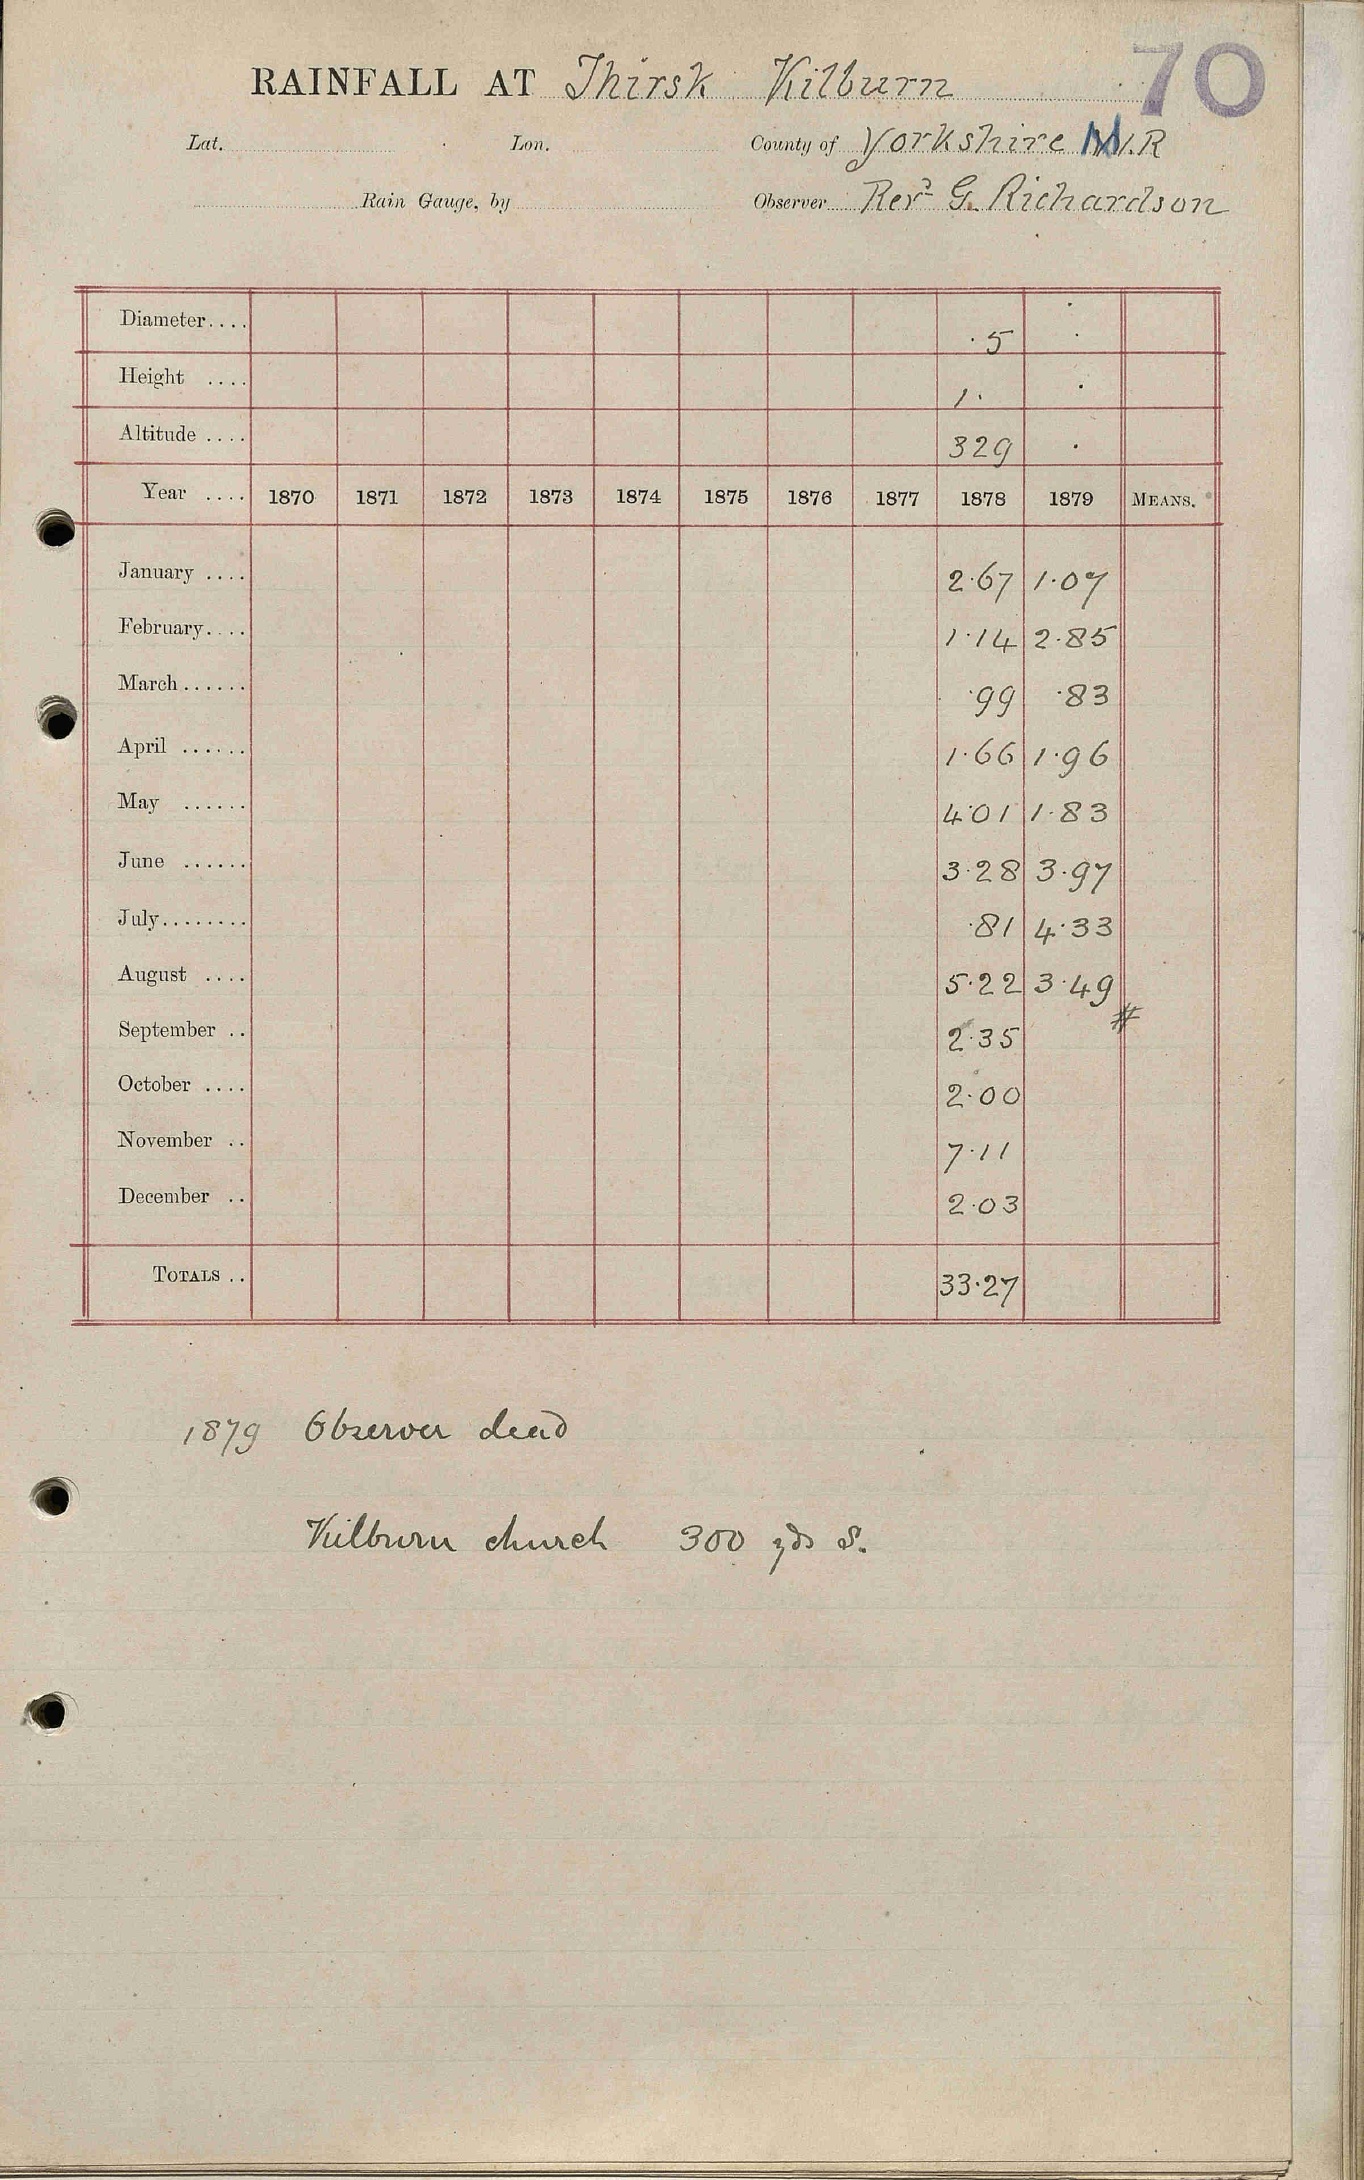 70
RAINFALL AT Thirsk Kilburn
Lat. Lon. County of Yorkshire N.R
Rain Gauge, by Observer Revd G. Richardson
Diameter.... 5
Height .... 1.
Altitude .... 329
Year .... 1870 1871 1872 1873 1874 1875 1876 1877 1878 1879 MEANS.
January .... 2.67 1.07
February.... 1.14 2.85
March...... .99 .83
April ...... 1.66 1.96
May ...... 4.01 1.83
June ...... 3.28 3.97
July........ .81 4.33
August .... 5.22 3.49
September .. 2.35 #
October .... 2.00
November .. 7.11
December .. 2.03
TOTALS .. 33.27
1879 Observer dead
Kilburn church 300 yds S.